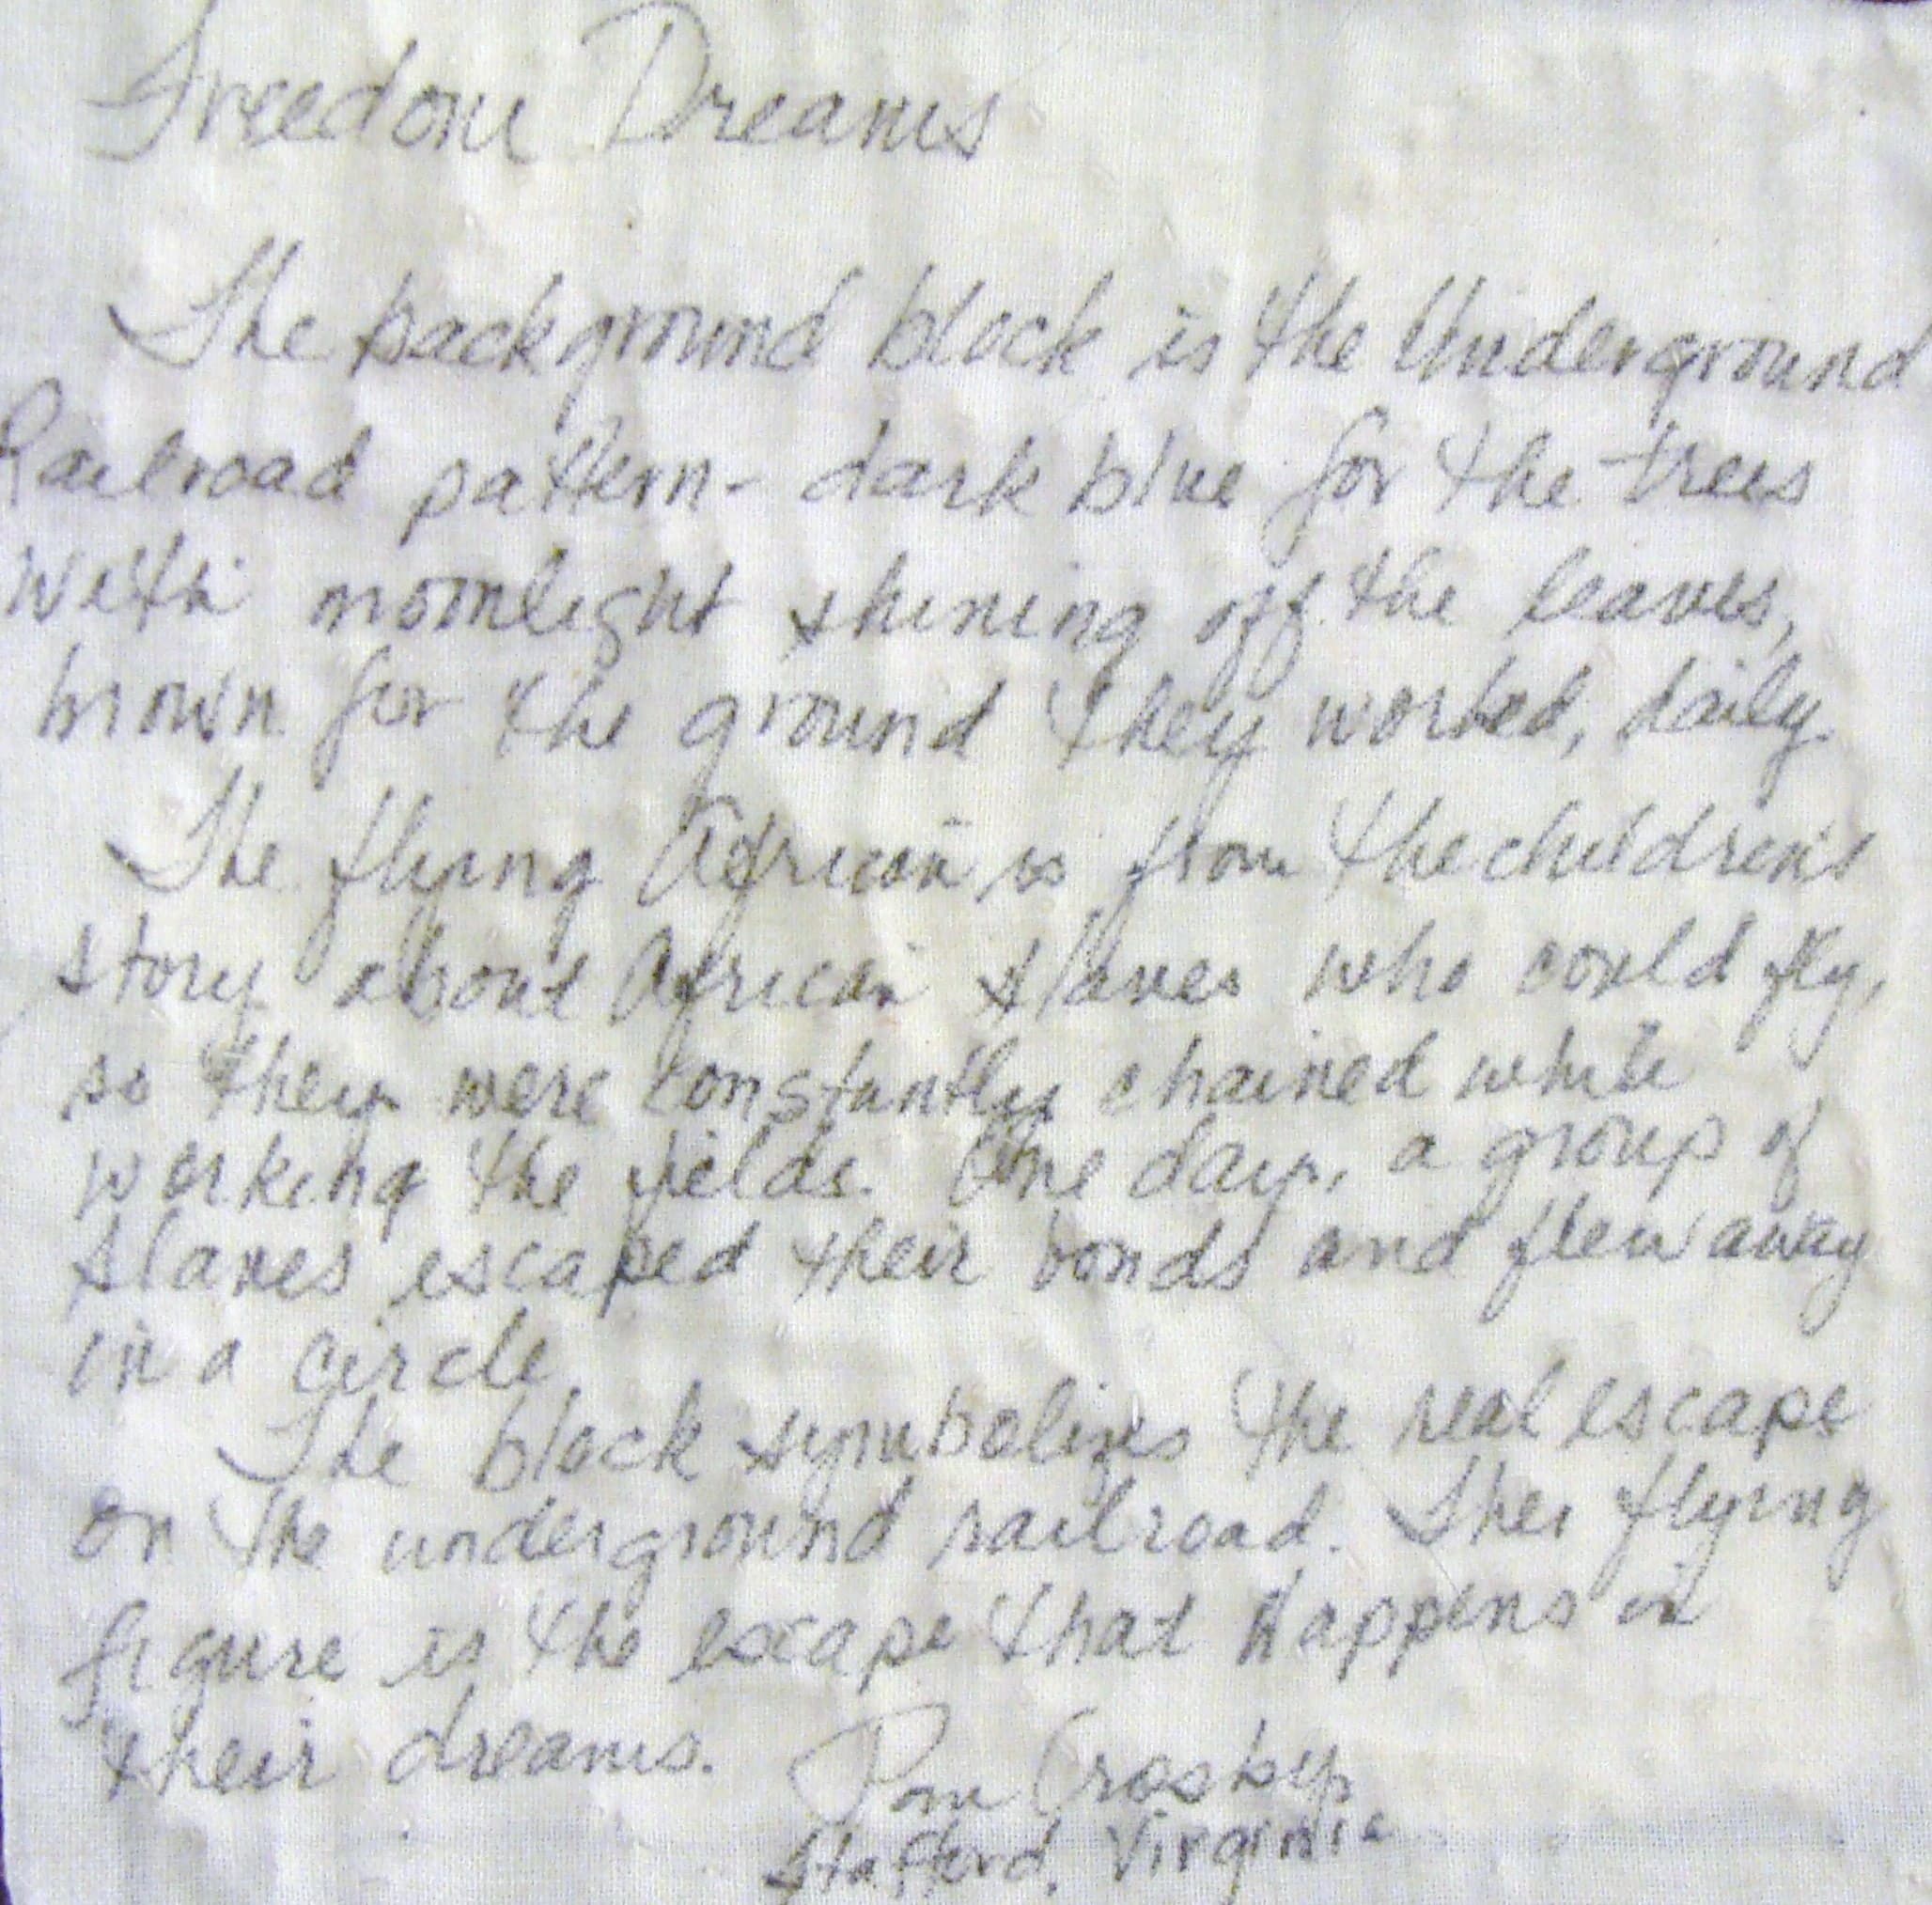 Freedom Dreams
The background block is the Underground
Railroad pattern - dark blue for the trees
with moonlight shining off the leaves,
brown for the ground they worked, daily.
The flying African is from the children's
story about African slaves who could fly,
so they were constantly chained while
working the fields. One day, a group of
slaves escaped their bonds and flew away
in a circle.
The block symbolizes the real escape
on the underground railroad. The flying
figure is the escape that happens in
their dreams.
Pam Crosby
Stafford, Virginia